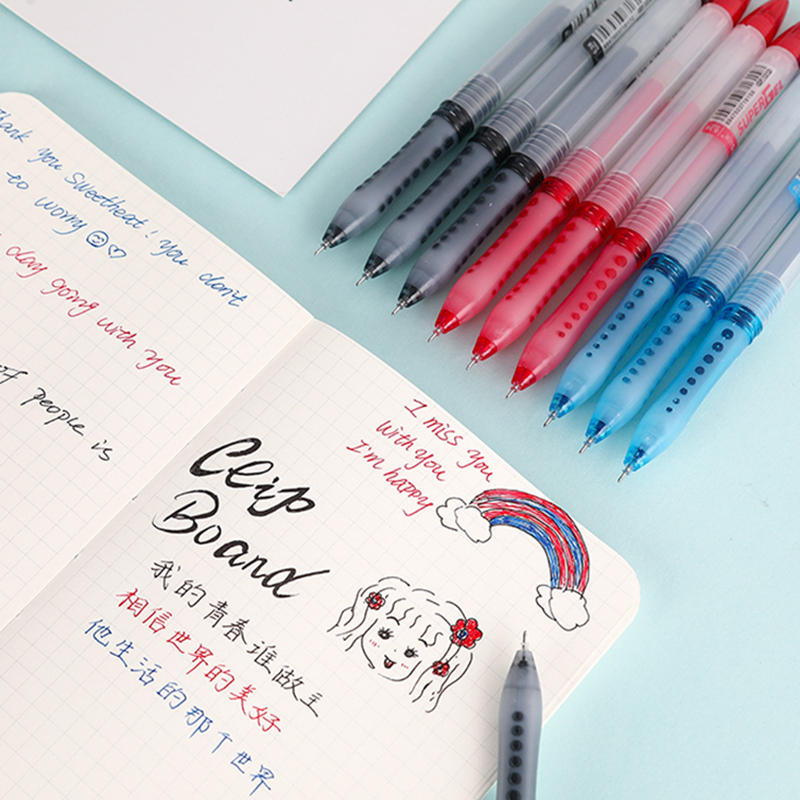 Thank you Sweetheat! You don't
to worry
day going with you
of people is
I miss you
With you
I'm happy
Clip
Board
我的青春谁做主
相信世界的美好
他生活的那个世界
SUPER GEL